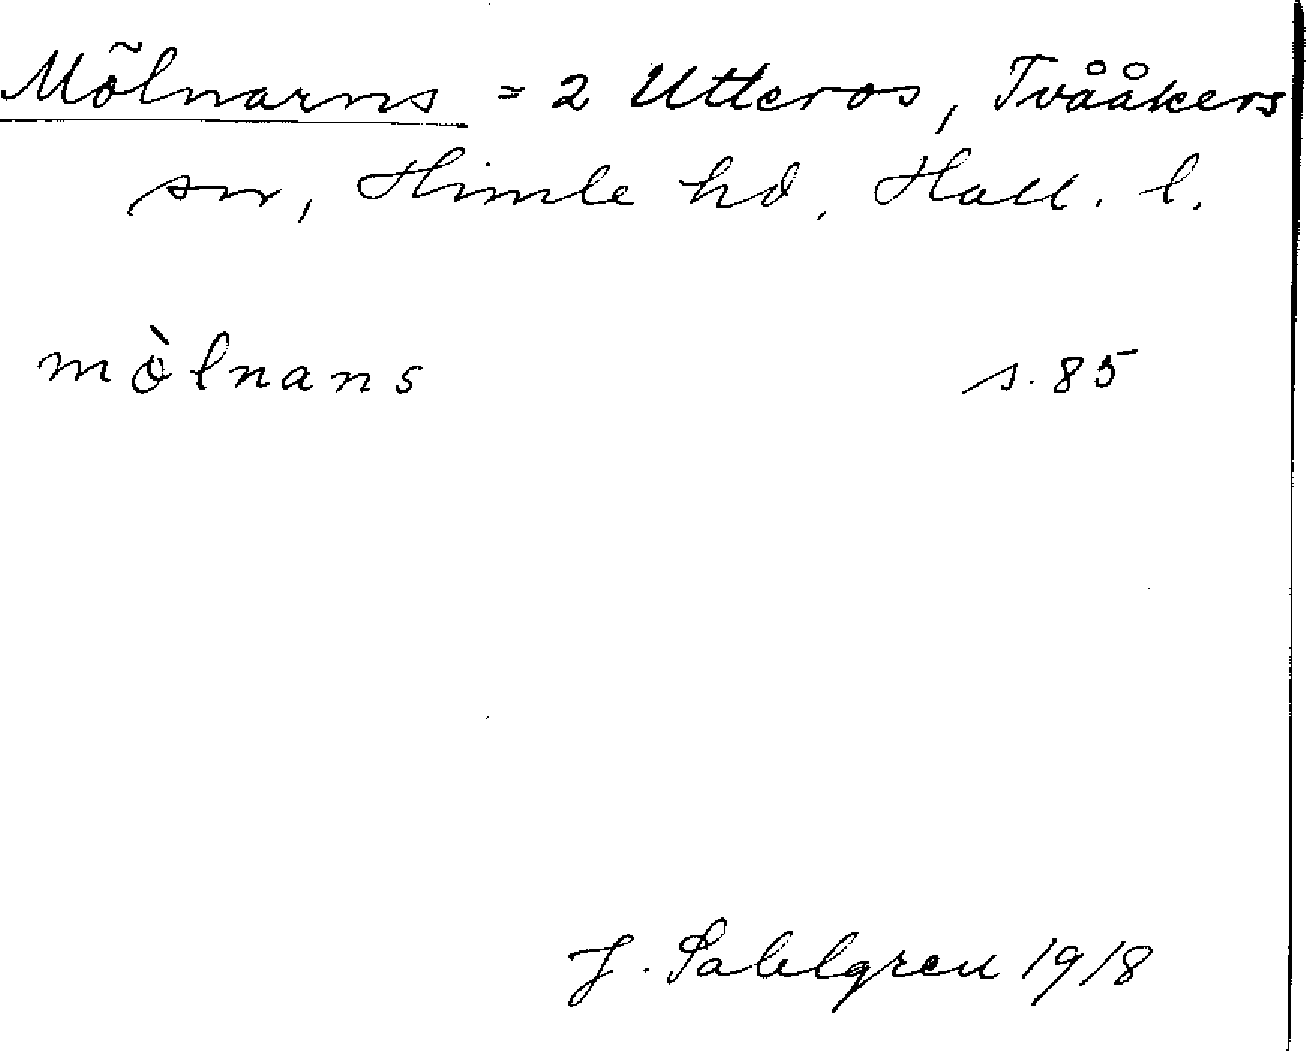 Mölnarns = 2 Utteros, Tvååkers
sn, Himle hd. Hall. l.
mòlnans s. 85
J. Sahlgren 1918